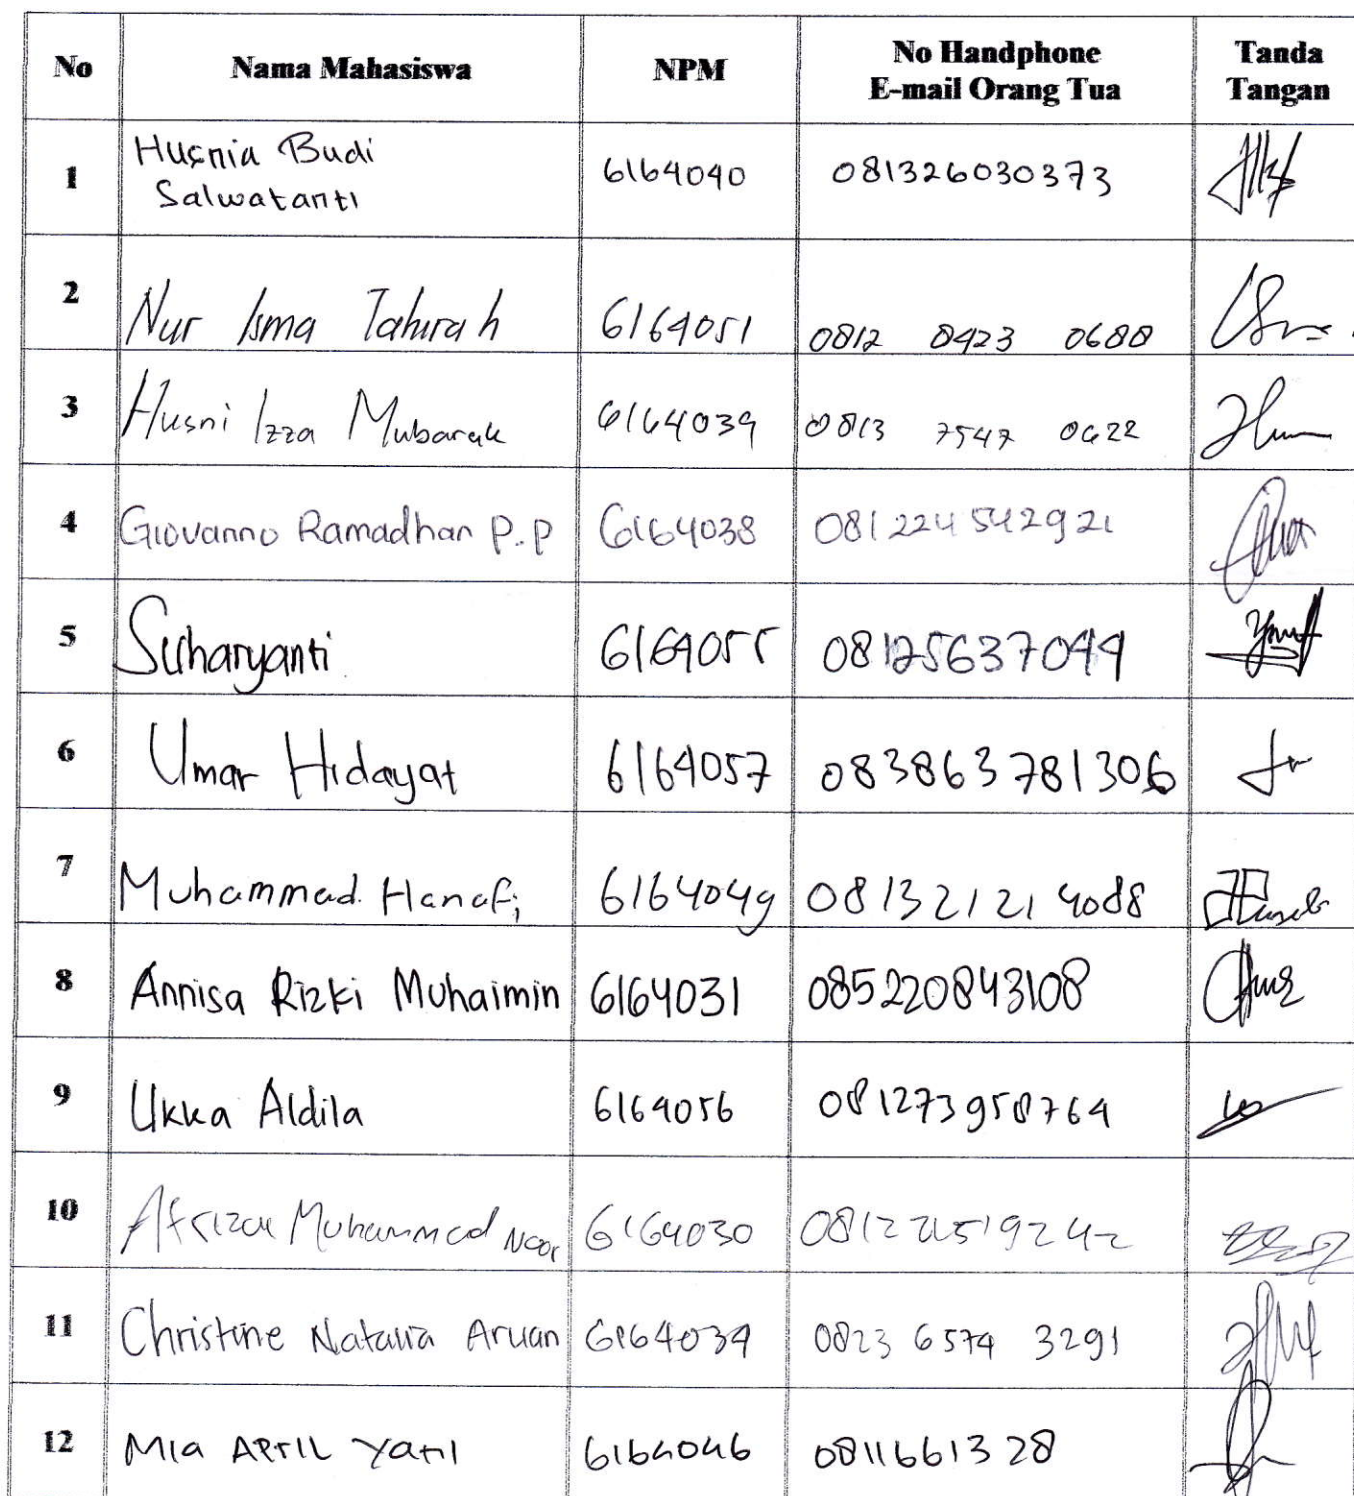 No Nama Mahasiswa NPM No Handphone E-mail Orang Tua Tanda Tangan
1 Husnia Budi Salwatanti 6164040 081326030373
2 Nur Isma Tahirah 6164051 0812 8423 0688
3 Husni Izza Mubarak 6164039 0813 7547 0622
4 Giovanno Ramadhan P.P 6164038 081224542921
5 Suharyanti 6164055 08125637044
6 Umar Hidayat 6164057 083863781306
7 Muhammad Hanafi 6164049 081321214088
8 Annisa Rizki Muhaimin 6164031 085220843108
9 Ukka Aldila 6164056 081273958764
10 Afrizal Muhammad Noor 6164030
11 Christine Natalia Aruan 6164034 0823 6574 3291
12 Mia APRIL Yani 6164046 0811661328